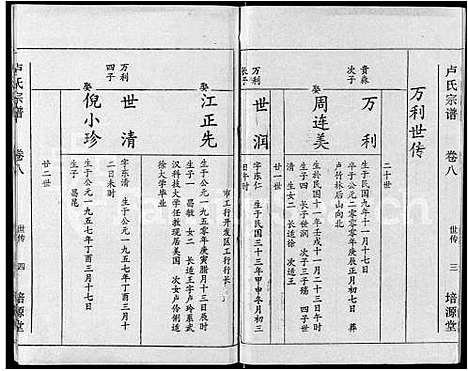 卢氏宗谱
卷八
世传
三
培源堂
万利世传
二十世
贵森
次子
万利
生于民国九年十一月十一日
卒于公元二零零零年庚辰正月初八 葬
卢竹林后山向北
娶
周连美
生于民国十一年壬戌十一月二十三日
子四 长子世润 次子三子殇 四子世
清 生女二 长适徐 次适王
廿一世
万利
长子
世润
字东仁 生于民国三十三年甲申年八月初三
日午时
市工行开发区工行行长
娶
江正先
生于公元一九五零年庚寅腊月十三日辰时
生子一 曷敏 女二 长适王字卢玲系武
汉科技大学任教现居美国 次女卢伶俐适
徐大学毕业
万利
四子
世清
字东清 生于公元一九五七年丁酉三月十
二日未时
娶
倪小珍
生于公元一九五七年丁酉三月十七日
生子 曷昆
廿二世
卢氏宗谱
卷八
世传
四
培源堂